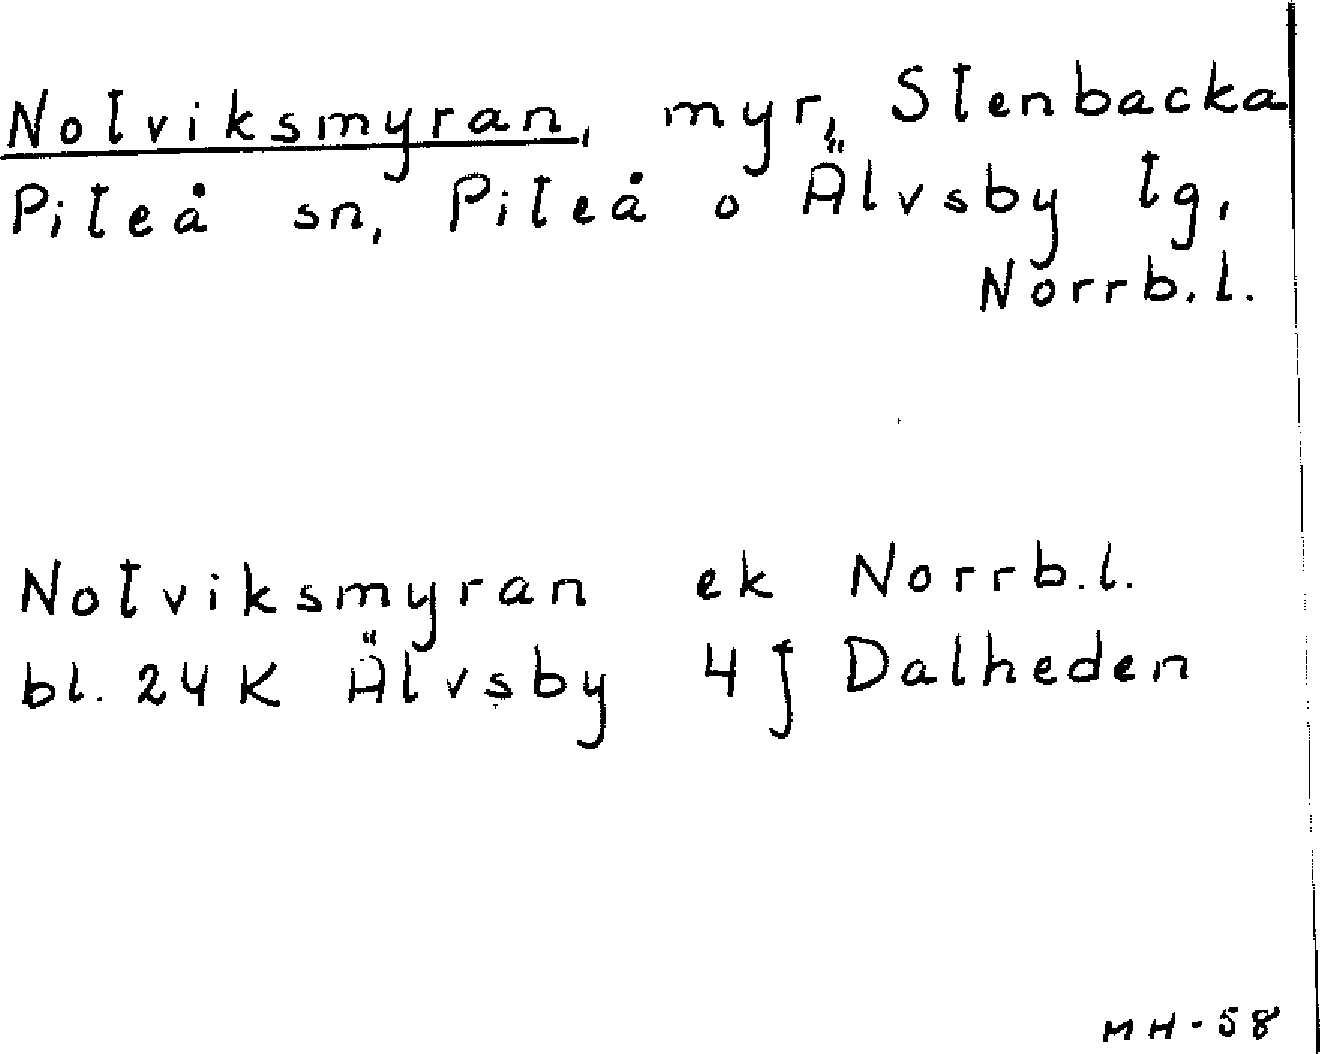 Notviksmyran, myr, Stenbacka
Piteå sn, Piteå o Älvsby tg,
Norrb.l.
Notviksmyran ek Norrb.l.
bl. 24K Älvsby 4j Dalheden
MH-58